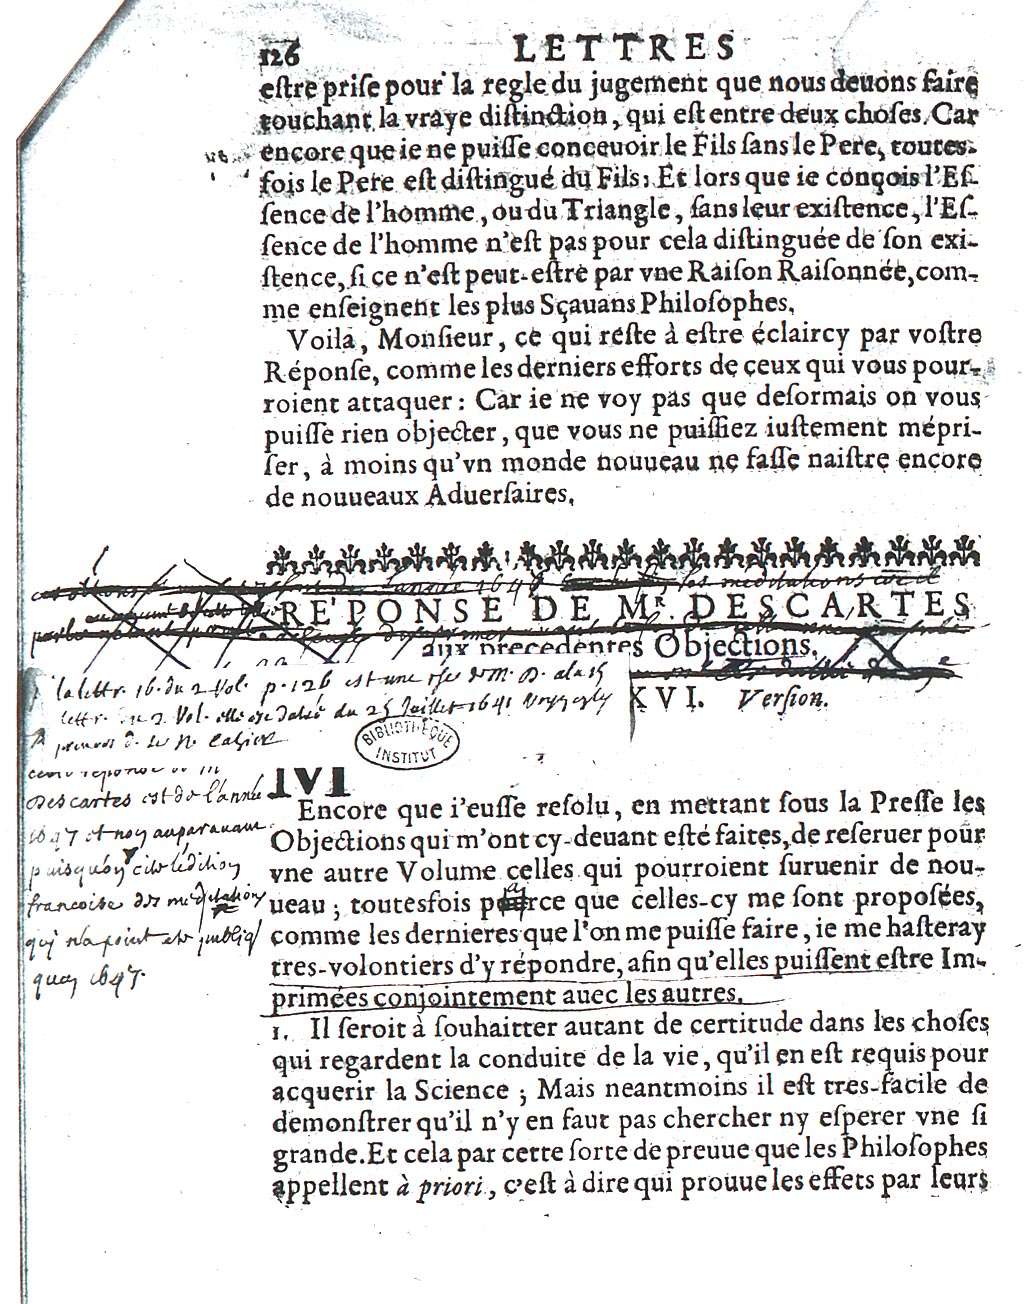 126 LETTRES
eſtre priſe pour la regle du jugement que nous deuons faire
touchant la vraye diſtinction, qui eſt entre deux choſes. Car
encore que ie ne puiſſe conceuoir le Fils ſans le Pere, toutes-
fois le Pere eſt diſtingué du Fils; Et lors que ie conçois l'Eſ-
ſence de l'homme, ou du Triangle, ſans leur exiſtence, l'Eſ-
ſence de l'homme n'eſt pas pour cela diſtinguée de ſon exi-
ſtence, ſi ce n'eſt peut-eſtre par vne Raiſon Raiſonnée, com-
me enſeignent les plus Sçauans Philoſophes.
Voila, Monſieur, ce qui reſte à eſtre éclaircy par voſtre
Réponſe, comme les derniers efforts de ceux qui vous pour-
roient attaquer: Car ie ne voy pas que deſormais on vous
puiſſe rien objecter, que vous ne puiſſiez iuſtement mépri-
ſer, à moins qu'vn monde nouueau ne faſſe naiſtre encore
de nouueaux Aduerſaires.
REPONSE DE Mr. DESCARTES
aux precedentes Objections.
la lettr. 16. du 2 Vol. p. 126 est une
lettr. 2. Vol. elle 25 Juillet 1641
XVI. Version.
BIBLIOTHÈQUE
INSTITUT
IVI
Descartes est de l'année
1647 et non auparavant
puisqu'on cite l'édition
francoise des meditations
qui n'a point eté publiq/
quen 1647.
Encore que i'euſſe reſolu, en mettant ſous la Preſſe les
Objections qui m'ont cy-deuant eſté faites, de reſeruer pour
vne autre Volume celles qui pourroient ſuruenir de nou-
ueau; toutesfois parce que celles-cy me ſont propoſées,
comme les dernieres que l'on me puiſſe faire, ie me haſteray
tres-volontiers d'y répondre, afin qu'elles puiſſent eſtre Im-
primées conjointement auec les autres.
1. Il ſeroit à ſouhaitter autant de certitude dans les choſes
qui regardent la conduite de la vie, qu'il en eſt requis pour
acquerir la Science; Mais neantmoins il eſt tres-facile de
demonſtrer qu'il n'y en faut pas chercher ny eſperer vne ſi
grande. Et cela par cette ſorte de preuue que les Philoſophes
appellent à priori, c'eſt à dire qui prouue les effets par leurs